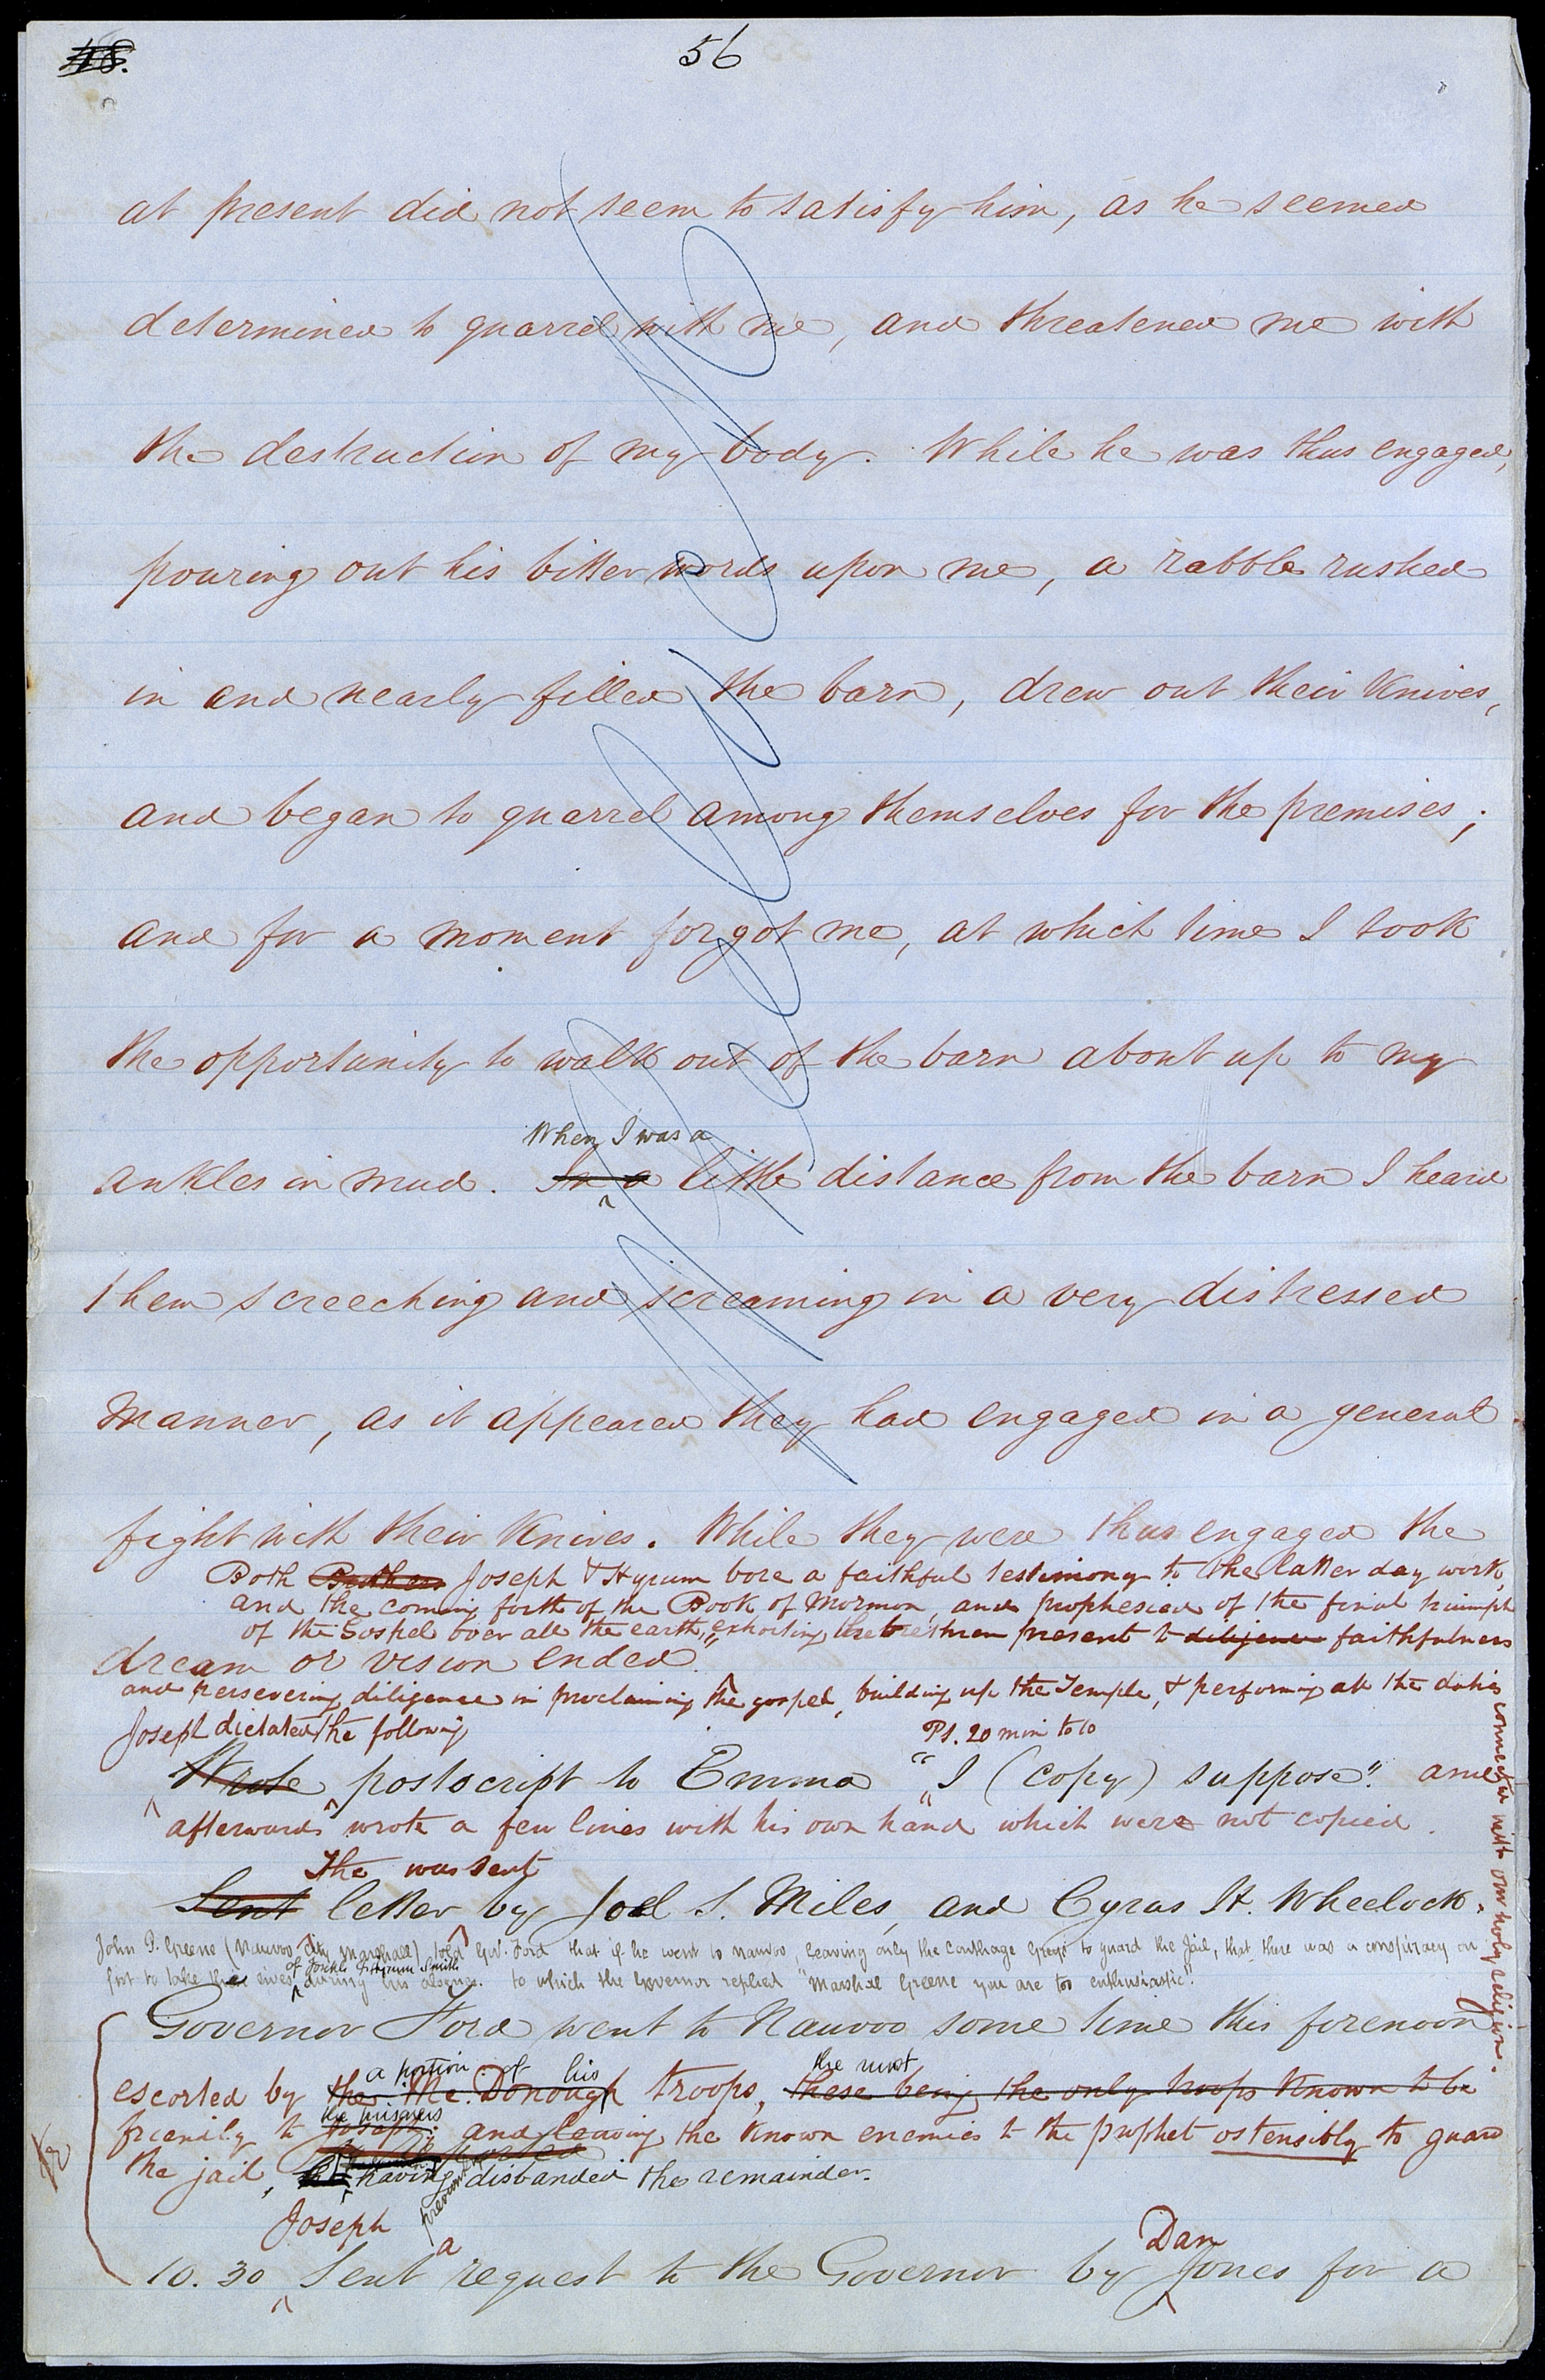 48.
56
at present did not seem to satisfy him, as he seemed
determined to quarrel with me, and threatened me with
the destruction of my body. While he was thus engaged,
pouring out his bitter words upon me, a rabble rushed
in and nearly filled the barn, drew out their knives,
and began to quarrel among themselves for the premises;
and for a moment forgot me, at which time I took
the opportunity to walk out of the barn about up to my
When I was a
ankles in mud. In a little distance from the barn I heard
them screeching and screaming in a very distressed
manner, as it appeared they had engaged in a general
fight with their knives. While they were thus engaged the
Both Brothers Joseph & Hyrum bore a faithful testimony to the latter day work,
and the coming forth of the Book of Mormon, and prophesied of the final triumph
of the Gospel over all the earth, exhorting the brethren present to diligence faithfulness
dream or vision ended."
and persevering diligence in proclaiming the gospel, building up the Temple, & performing all the duties
connected with our holy religion.
Joseph dictated the following
P.S. 20 min to 10
Wrote postscript to Emma "I (copy) suppose". and
afterwards wrote a few lines with his own hand which were not copied.
The was sent
Sent letter by Joel S. Miles, and Cyrus H. Wheelock.
John P. Greene (Nauvoo City Marshall) told Gov. Ford that if he went to Nauvoo, leaving only the Carthage Greys to guard the Jail, that there was a conspiracy on
of Joseph & Hyrum Smith
foot to take the lives during his absence. to which the Governor replied "Marshal Greene you are too enthusiastic".
Governor Ford went to Nauvoo some time this forenoon
a portion of his the most
escorted by the Mc.Donough troops, these being the only troops known to be
the prisoners
friendly to Joseph; and leaving the known enemies to the prophet ostensibly to guard
the jail, having disbanded the remainder.
previously
Joseph a Dan
10.30 Sent request to the Governor by Jones for a